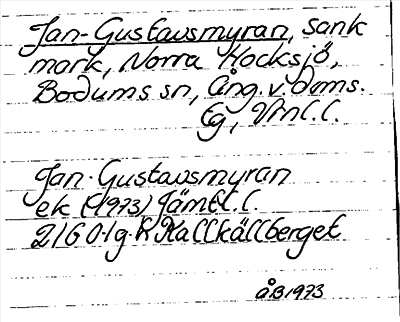 Jan-Gustavsmyran, sank
mark, Norra Hocksjö,
Bodums sn, Ång. v. doms.
lg, Vrnl. l.
Jan-Gustavsmyran
ek (1973) Jämtl. l.
21G 0-1g. R Kallkällberget
åB 1973